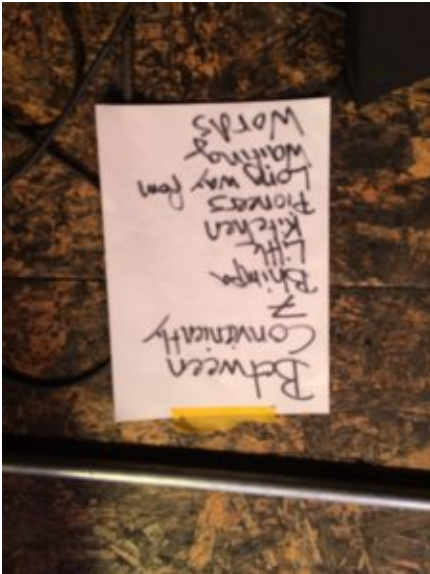 Between
Conveniently
7
Bhimpa
Little
Kitchen
Pioneers
Long way from
Waiting
Words